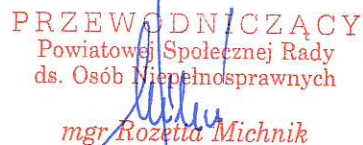 PRZEWODNICZĄCY
Powiatowej Społecznej Rady
ds. Osób Niepełnosprawnych
mgr Rozetta Michnik